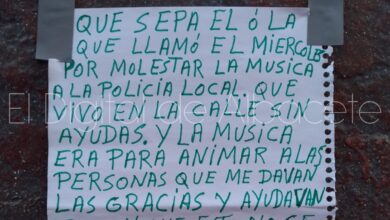 QUE SEPA EL Ó LA
QUE LLAMÓ EL MIERCOLES
POR MOLESTAR LA MUSICA
A LA POLICIA LOCAL. QUE
VIVO EN LA CALLE SIN
AYUDAS. Y LA MUSICA
ERA PARA ANIMAR A LAS
PERSONAS QUE ME DAVAN
LAS GRACIAS Y AYUDAVAN
El Digital de Albacete